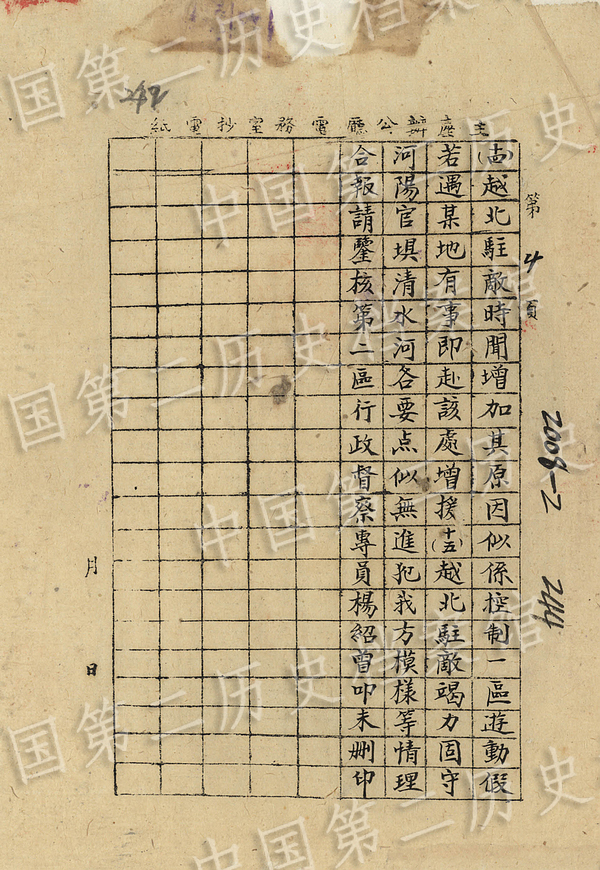 主座辦公廳電務室抄電紙
第4頁
2008-2 244
(十四)越北駐敵時聞增加其原因似係控制一區遊動假
若遇某地有事即赴該處增援(十五)越北駐敵竭力固守
河陽官埧清水河各要点似無進犯我方模樣等情理
合報請鑒核第二區行政督察專員楊紹曾叩未刪印
月 日
中国第二历史档案馆